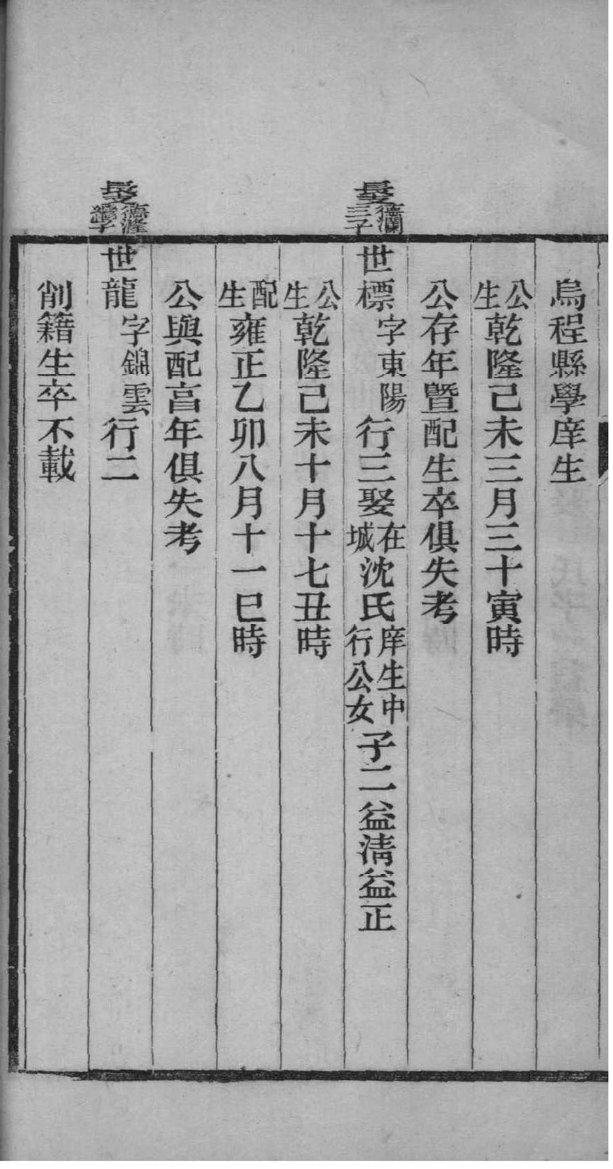 烏程縣學庠生
公生乾隆己未三月三十寅時
公存年暨配生卒俱失考
德瀾三子
世標字東陽行三娶在城沈氏庠生中行公女子二益清益正
公生乾隆己未十月十七丑時
配生雍正乙卯八月十一巳時
公與配亯年俱失考
世龍字錦雲行二
削籍生卒不載